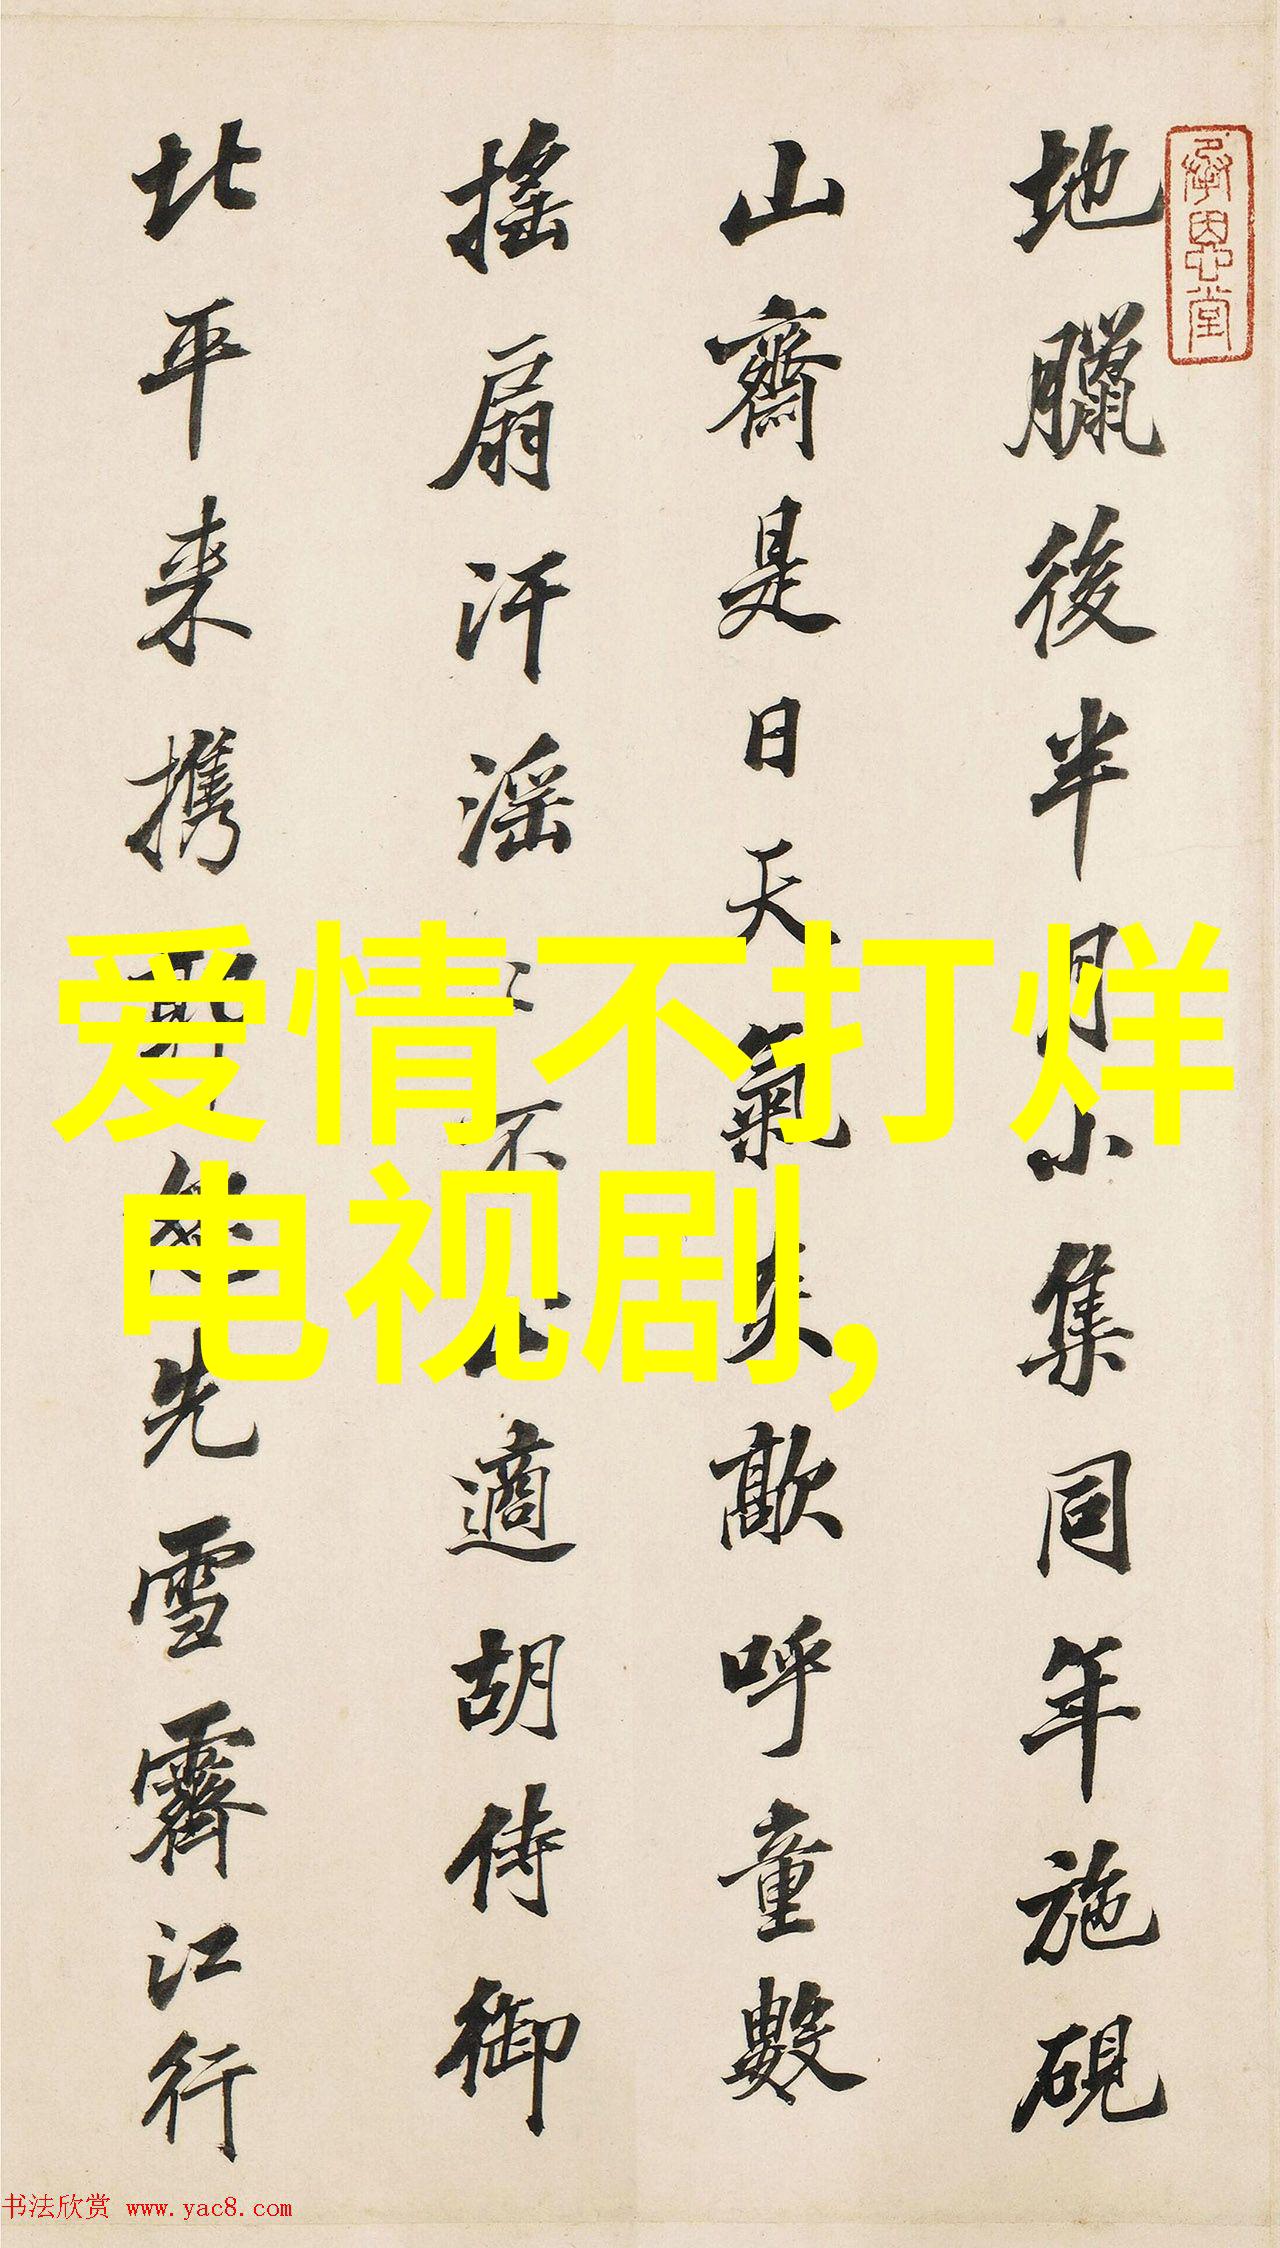 承恩堂
地臘後半月小集同年施硯
山齋是日天氣炎歊呼童數
搖扇汗滛〻不止適胡侍御
北平来携郭恕先雪霽江行
爱情不打烊
电视剧,
书法欣赏 www.yac8.com